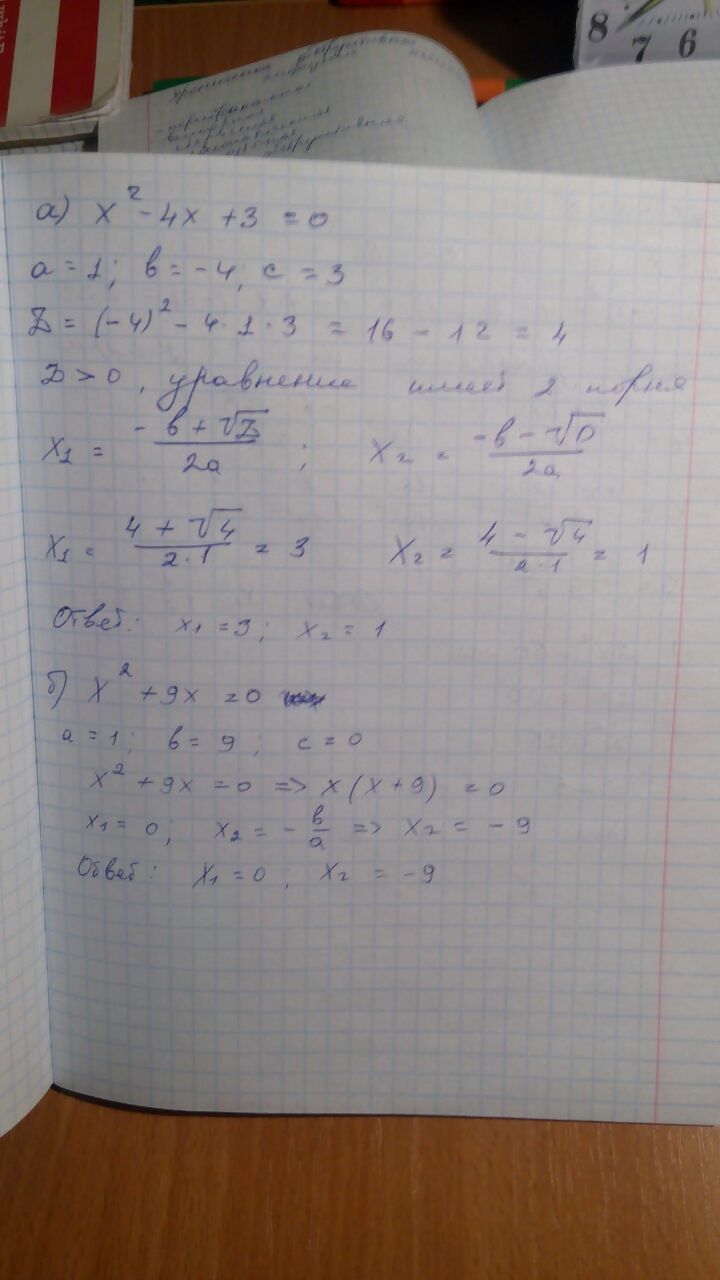 8
7 6
а) x² - 4x + 3 = 0
a = 1; в = -4; c = 3
D = (-4)² - 4·1·3 = 16 - 12 = 4
D > 0, уравнение имеет 2 корня
x₁ = (-в + √D)/2a ; x₂ = (-в - √D)/2a
x₁ = (4 + √4)/2·1 = 3 x₂ = (4 - √4)/2·1 = 1
Ответ: x₁ = 3; x₂ = 1
б) x² + 9x = 0
a = 1; в = 9; c = 0
x² + 9x = 0 => x(x + 9) = 0
x₁ = 0; x₂ = -в/a => x₂ = -9
Ответ: x₁ = 0; x₂ = -9